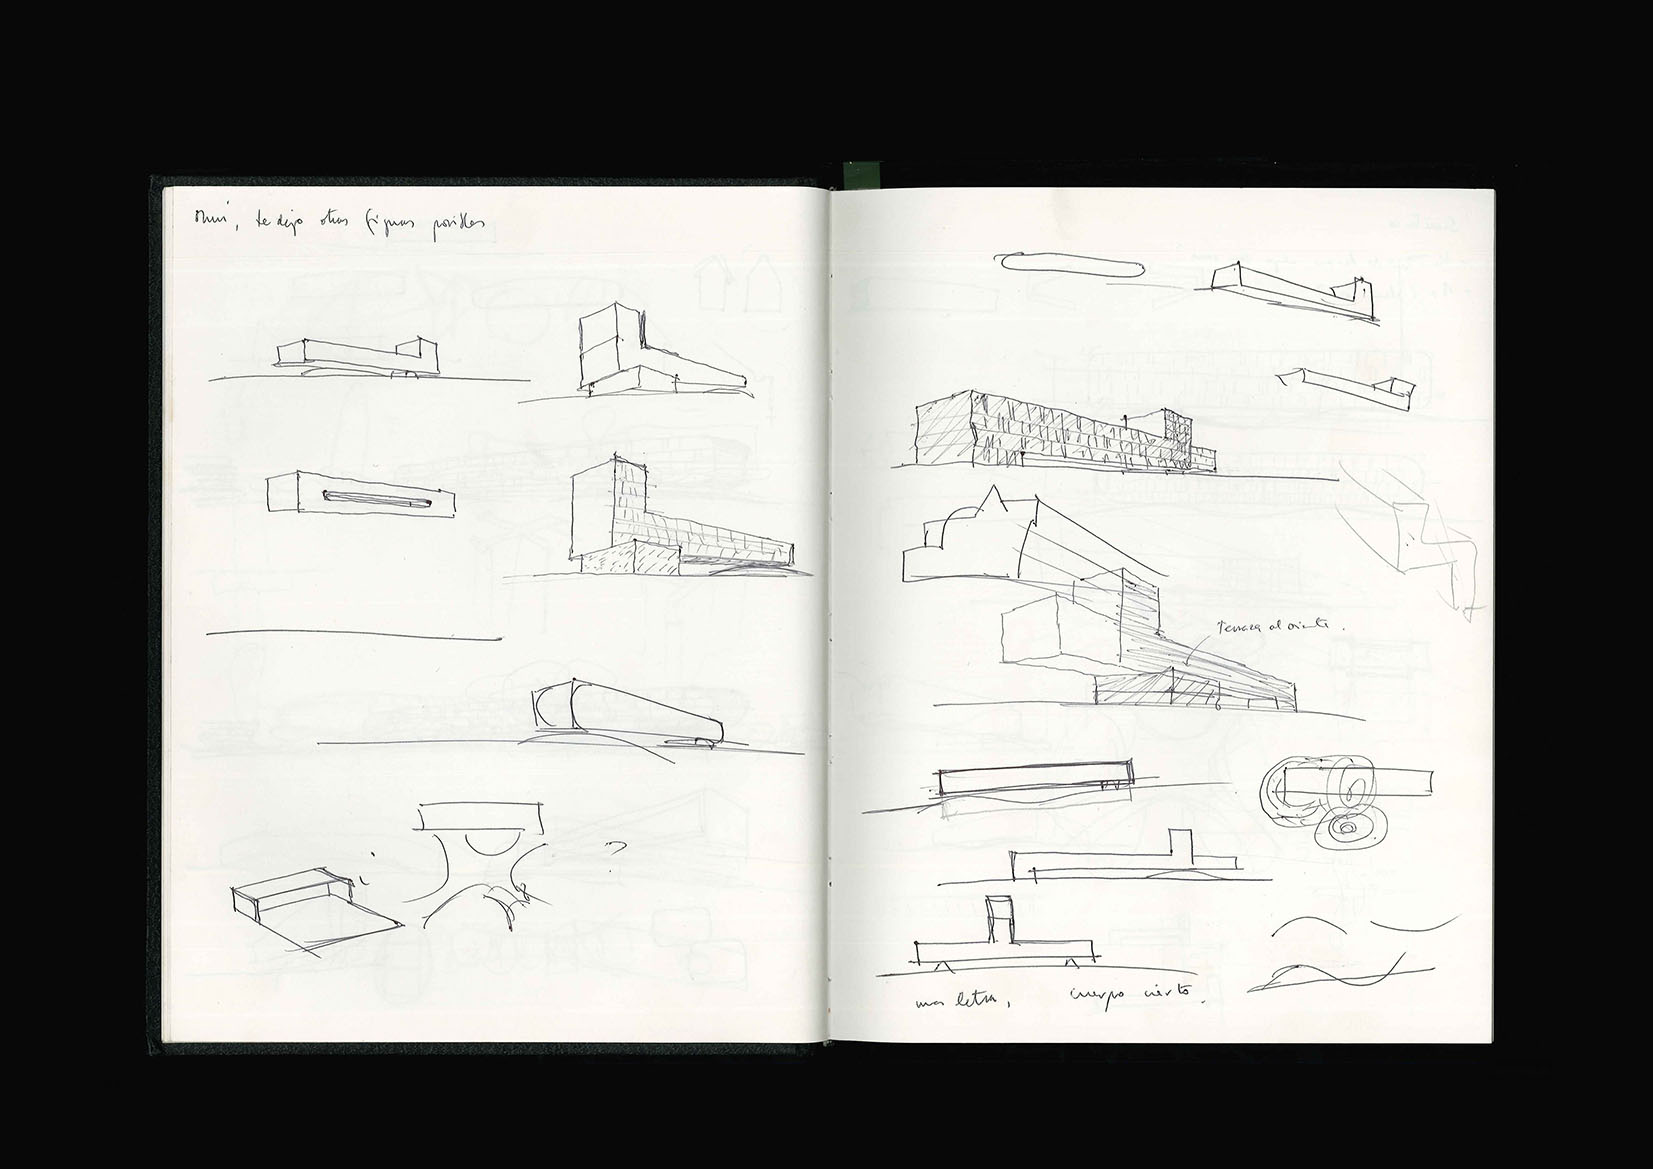 te dejo otras figuras posibles
terraza al oriente.
una letra, cuerpo cierto.
?